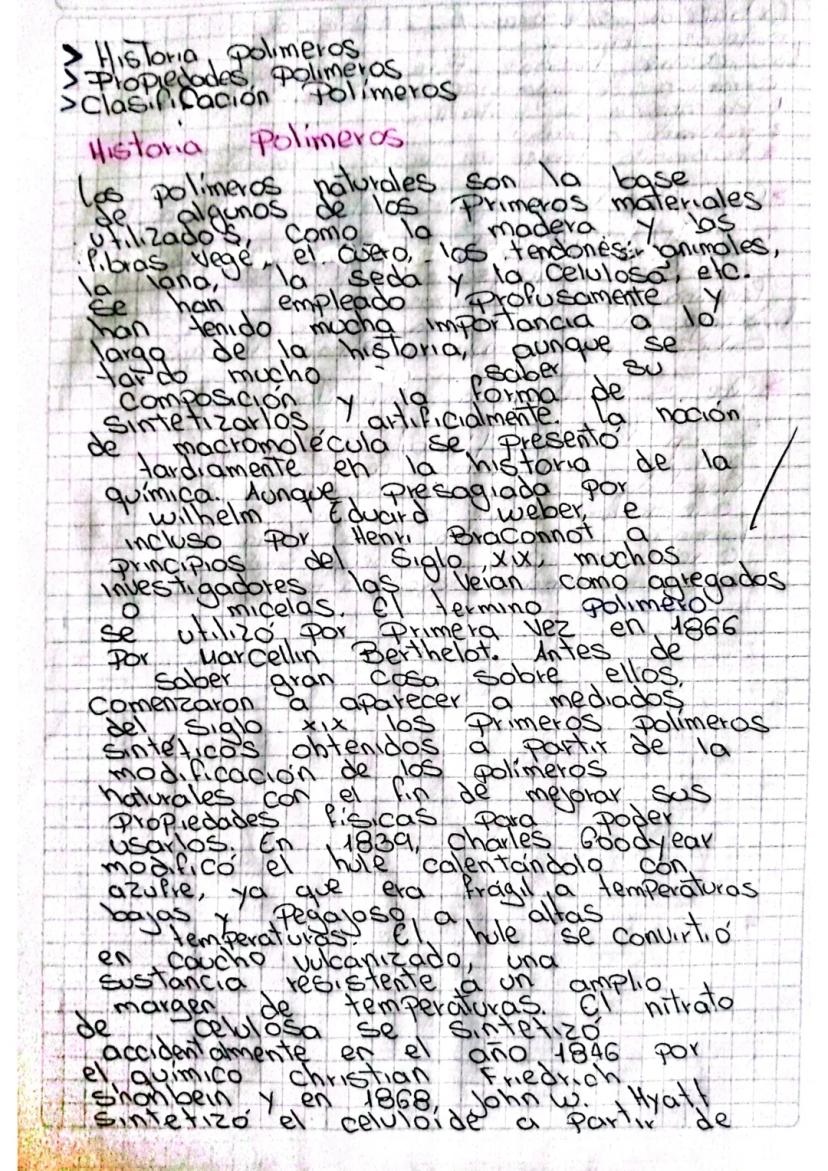 > Historia polimeros
> Propiedades polimeros
> Clasificación Polimeros
Historia Polimeros
Los polimeros naturales son la base
de algunos de los Primeros materiales
utilizados, como la madera y las
fibras vege, el asero, los tendones animales,
la lana, la seda y la celulosa, etc.
se han empleado Profusamente y
han tenido mucha importancia a lo
largo de la historia, aunque se
tardo mucho saber su
composición y la forma de
sintetizarlos artificialmente. La noción
de macromolécula se presentó
tardiamente en la historia de la
química. Aunque presagiada por
Wilhelm Eduard Weber, e
incluso por Henri Braconnot a
principios del Siglo XIX, muchos
investigadores las veian como agregados
o micelas. El termino polimero
se utilizó por Primera vez en 1866
por Marcellin Berthelot. Antes de
saber gran cosa sobre ellos,
comenzaron a aparecer a mediados
del siglo XIX los Primeros polimeros
sintéticos obtenidos a partir de la
modificación de los polimeros
naturales con el fin de mejorar sus
propiedades fisicas para poder
usarlos. En 1839, Charles Goodyear
modificó el hule calentándolo con
azufre, ya que era frágil a temperaturas
bajas y Pegajoso a altas
temperaturas. El hule se convirtió
en caucho vulcanizado, una
sustancia resistente a un amplio
margen de temperaturas. El nitrato
de celulosa se sintetizó
accidentalmente en el año 1846 por
el químico Christian Friedrich
Shonbein y en 1868, John W. Hyatt
sintetizó el celuloide a partir de